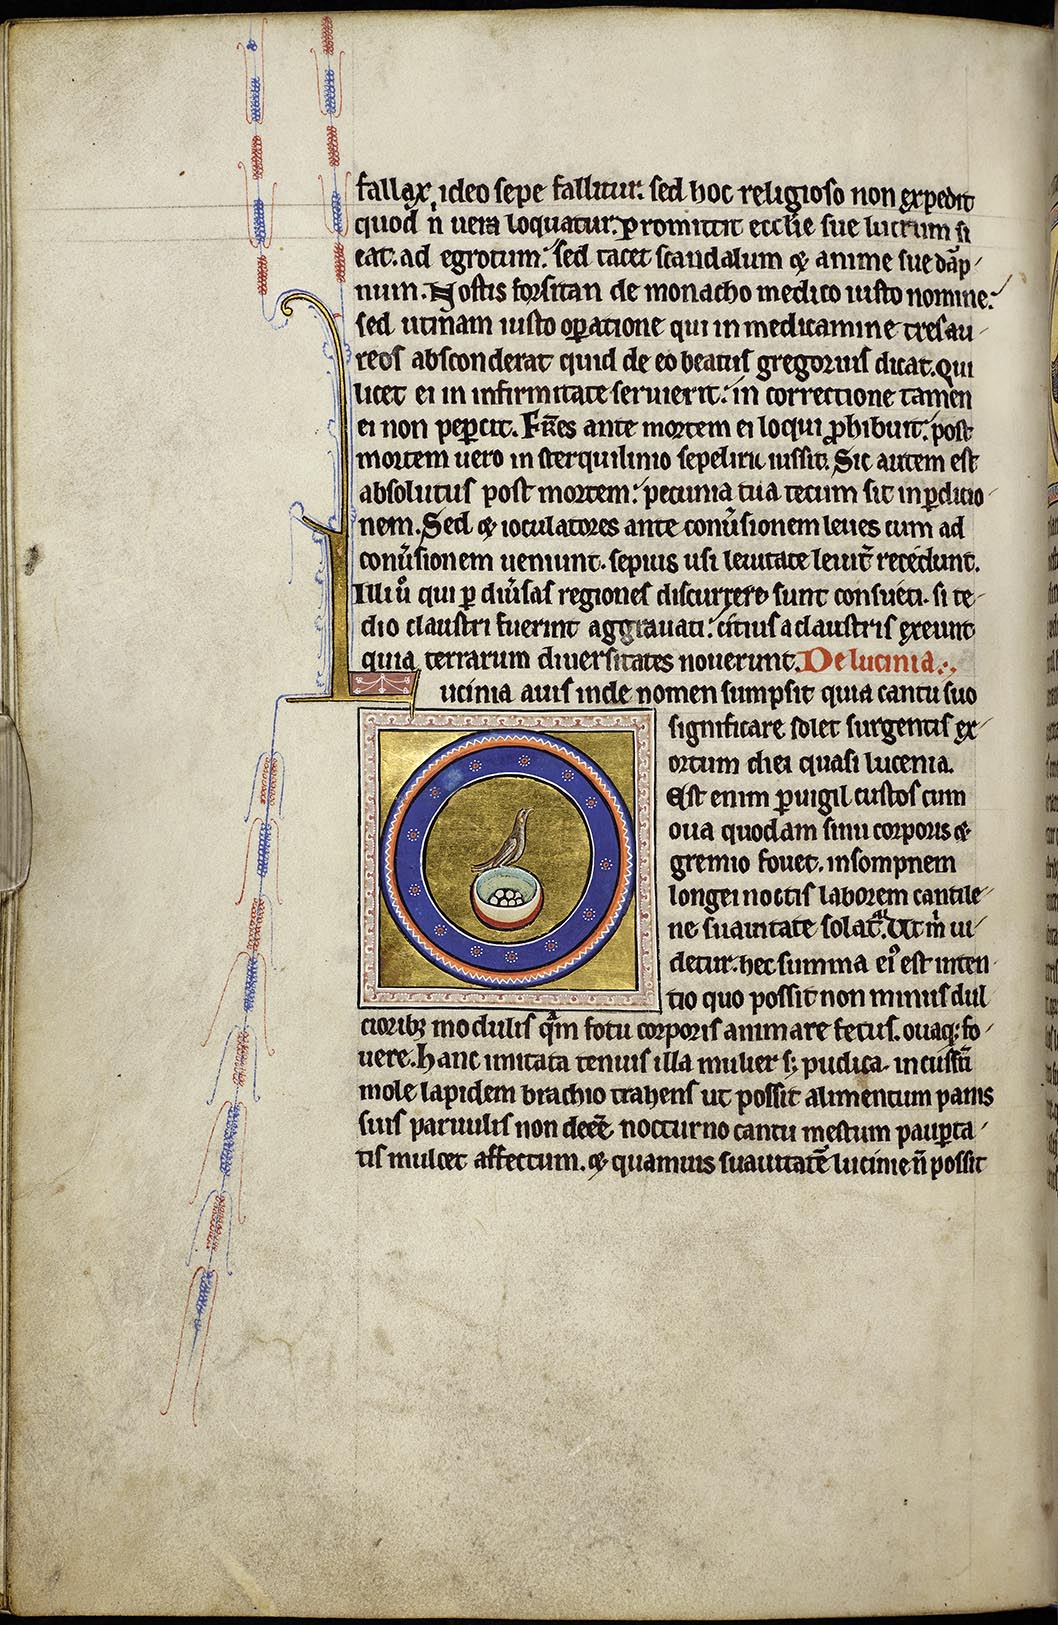 fallax, ideo sepe fallitur. sed hoc religioso non expedit
quod n̄ uera loquatur. promittit eccl'ie sue lucrum si
eat. ad egrotum. sed tacet scandalum & anime sue dāp
num. Nostis forsitan de monacho medico iusto nomine.
sed utinam iusto oꝑatione qui in medicamine tres au
reos absconderat quid de eo beatus gregorius dicat. Qui
licet ei in infirmitate seruierit. in correctione tamen
ei non peꝑcit. Fr̄es ante mortem ei loqui ꝓhibuit. post
mortem uero in sterquilinio sepeliri iussit. Sic autem est
absolutus post mortem. pecunia tua tecum sit in ꝑdicio
nem. Sed & ioculatores ante conu̕sionem leues cum ad
conu̕sionem ueniunt. sepius usi leuitate leuit̕ recedunt.
Illi u̕o qui ꝑ diu̕sas regiones discurrere sunt consueti. si te
dio claustri fuerint aggrauati. citius a claustris exeunt
quia terrarum diuersitates nouerunt. De lucinia.
Lucinia auis inde nomen sumpsit quia cantu suo
significare solet surgentis ex
ortum diei quasi lucenia.
Est enim ꝑuigil custos cum
oua quodam sinu corporis &
gremio fouet. insompnem
longe noctis laborem cantile
ne suauitate solat̕. Ut m̕ ui
detur. hec summa ei̕ est inten
tio quo possit non minus dul
cioribꝫ modulis qͣm fotu corporis animare fetus. ouaqꝫ fo
uere. Hanc imitata tenuis illa mulier sꝫ pudica. incussū
mole lapidem brachio trahens ut possit alimentum panis
suis paruulis non deeē nocturno cantu mestum pauꝑta
tis mulcet affectum. & quamuis suauitatē lucinie n̄ possit